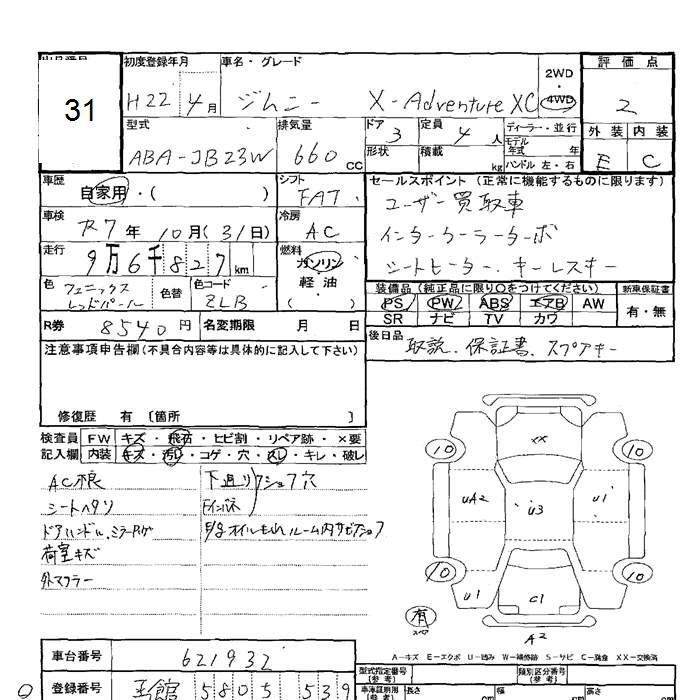 31
初度登録年月 車名・グレード 2WD・4WD 評価点
H22 4月 ジムニー X-Adventure XC 2
型式 排気量 ドア 定員 ディーラー・並行 外装 内装
ABA-JB23W 660cc 3 4人 モデル年式 年 E C
形状 積載 kg ハンドル 左・右
車歴 自家用・( ) シフト FAT セールスポイント(正常に機能するものに限ります)
ユーザー買取車
車検 R7年 10月(31日) 冷房 AC
インタークーラーターボ
走行 9万6千827km 燃料 ガソリン 軽油 ( )
シートヒーター、キーレスキー
色 フェニックスレッドパール 色替 色コード ZLB
装備品(純正品に限り○をつけてください) 新車保証書
PS PW ABS エアB AW 有・無
SR ナビ TV カワ
R券 8540円 名変期限 月 日
後日品 取説、保証書、スペアキー
注意事項申告欄(不具合内容等は具体的に記入して下さい)
修復歴 有 〔箇所 〕
検査員 FW キズ・飛石・ヒビ割・リペア跡・×要
記入欄 内装 キズ・汚れ・コゲ・穴・スレ・キレ・破レ
AC 下廻り
シートヘタリ
ドアハンドル、ミラー
荷室キズ
外マフラー
XX
10 10
UA2 U3 U1
10 10
U1 C1
有 スペア
A2
A-キズ E-エクボ U-凹み W-補修跡 S-サビ C-腐食 XX-交換済
車台番号 621932
型式指定番号(参考) 類別区分番号(参考)
登録番号 580 5 539
長さ cm 幅 cm 高さ cm